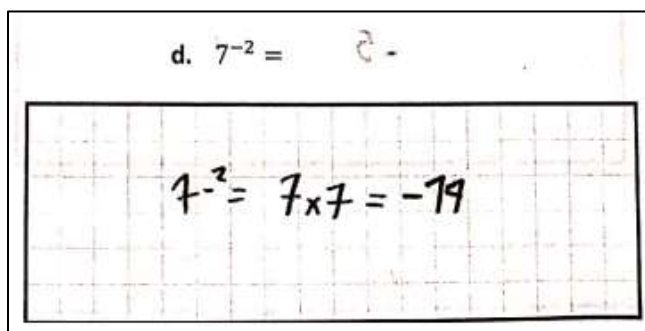 d. 7⁻² =
7⁻² = 7x7 = -79